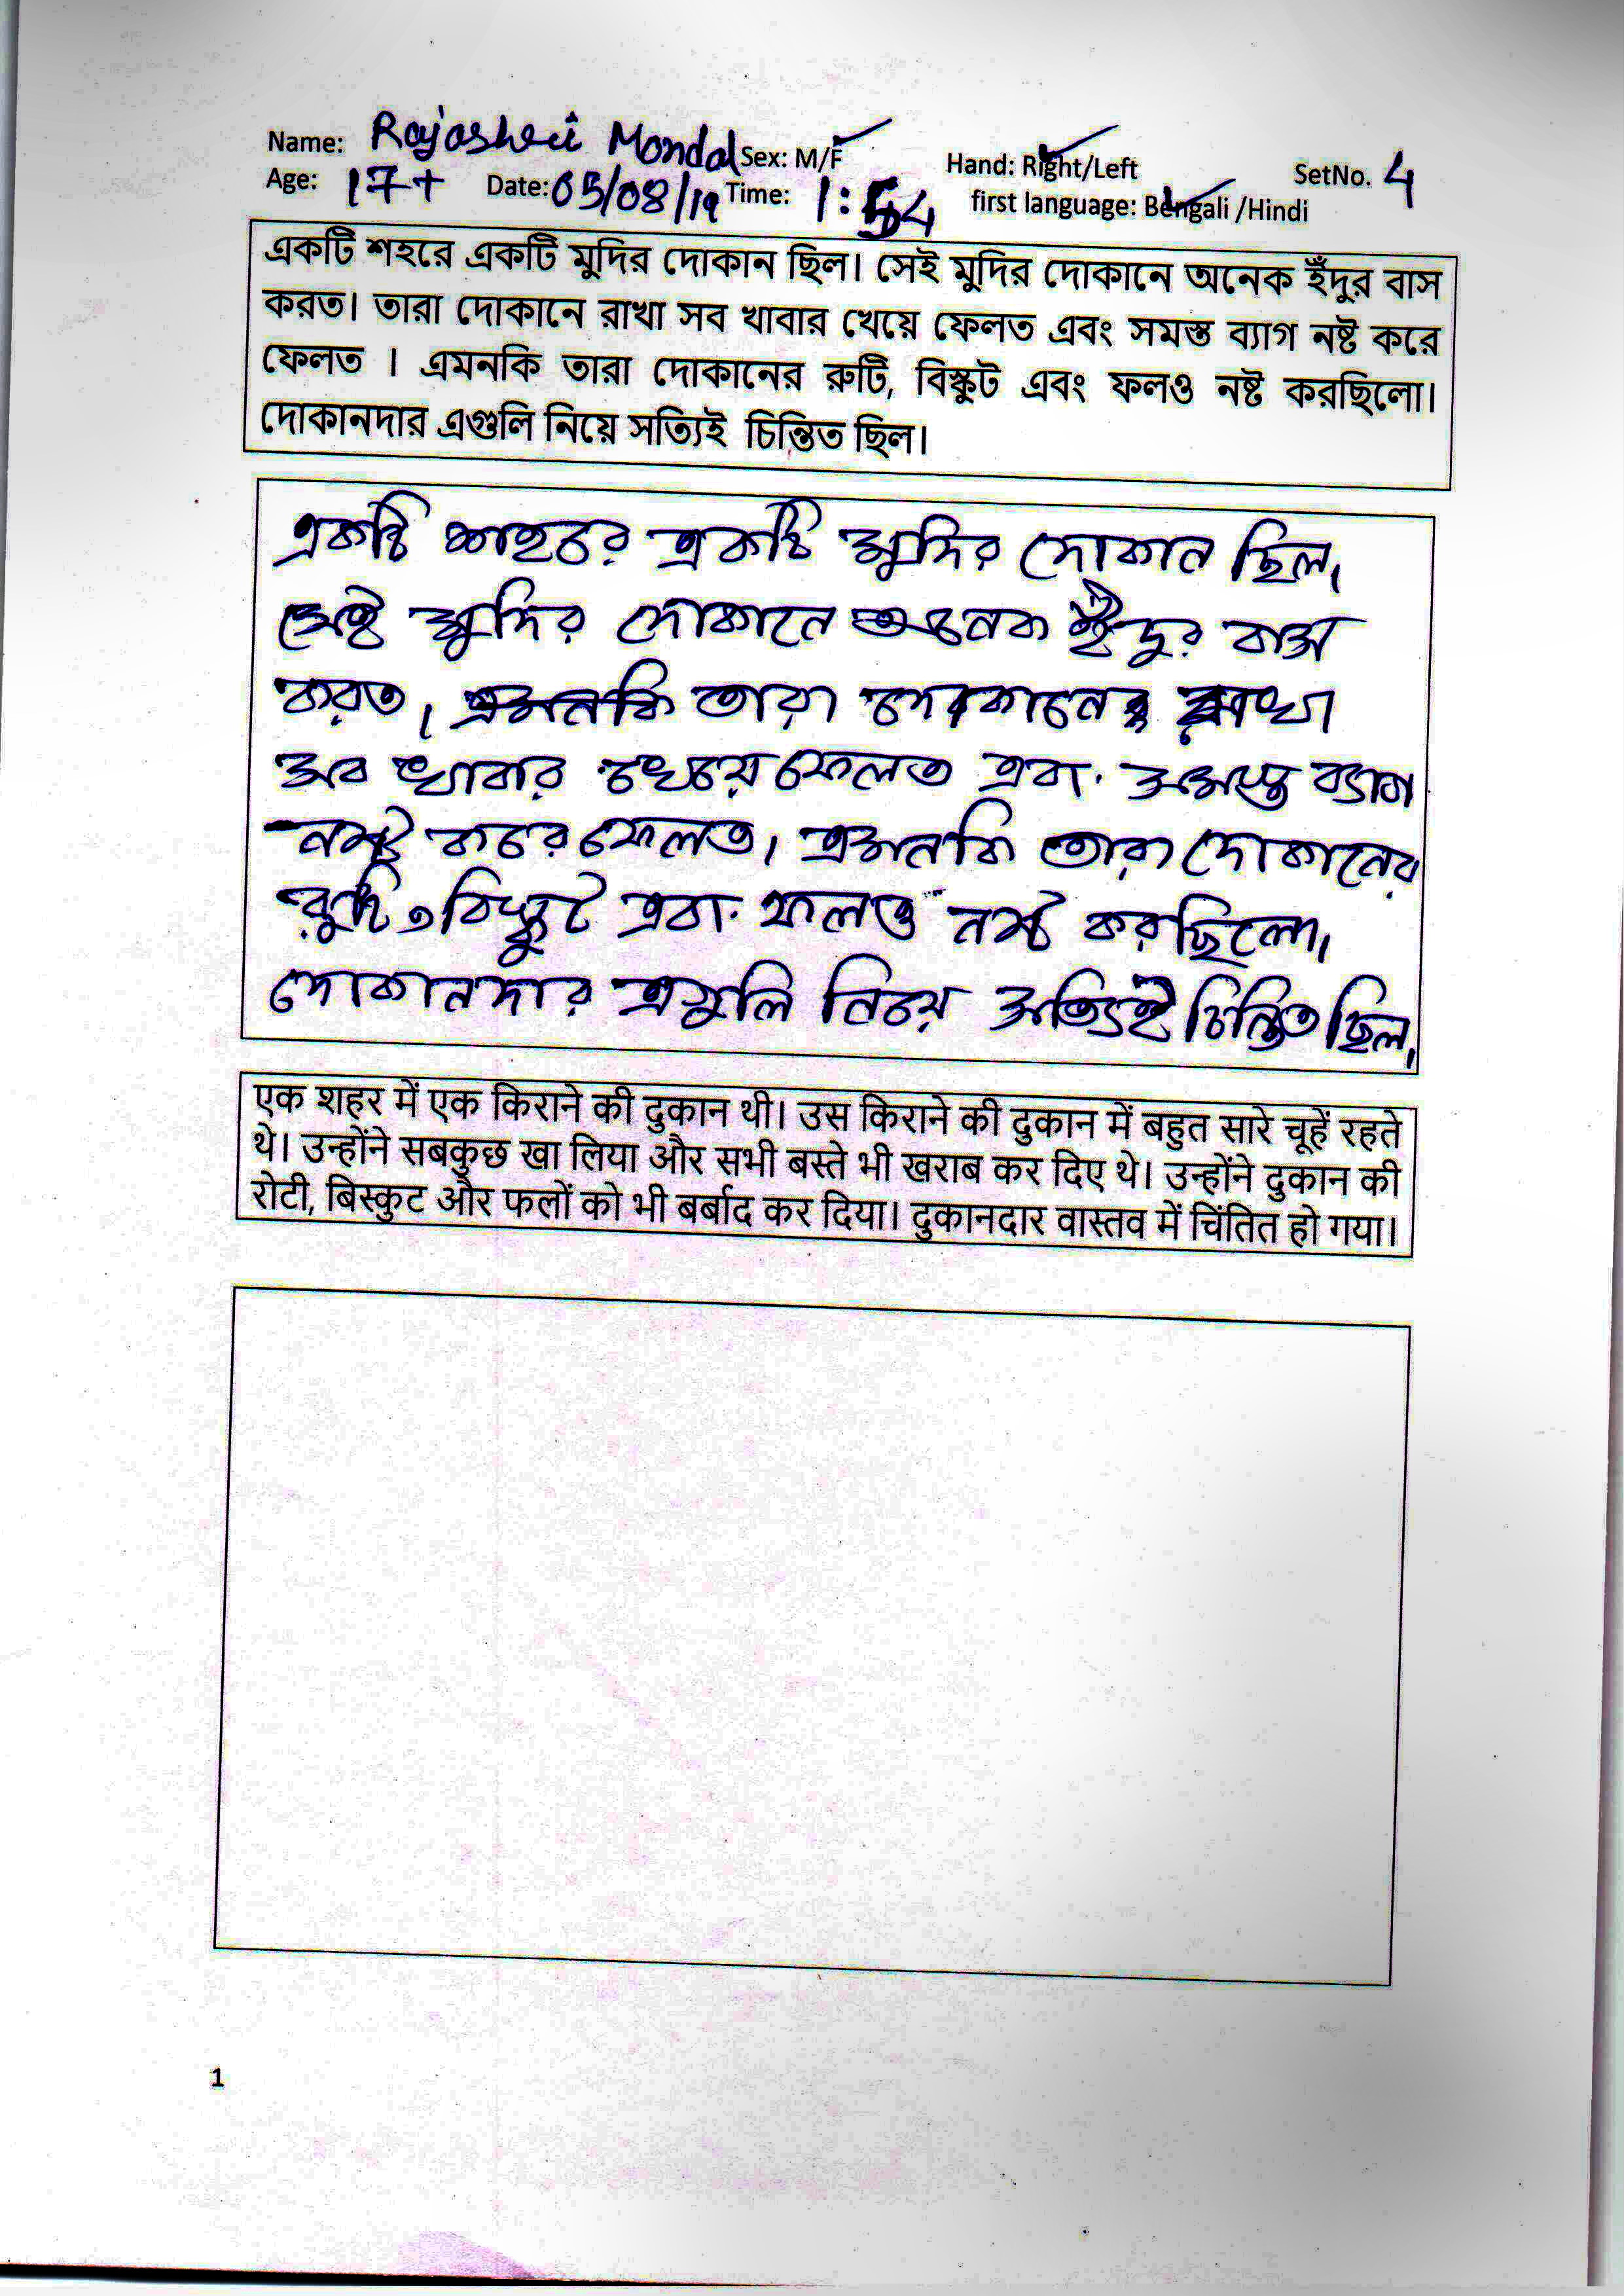 Name: Rajashree Mondal Sex: M/F Hand: Right/Left SetNo. 4
Age: 17+ Date: 05/08/19 Time: 1:54 first language: Bengali /Hindi
একটি শহরে একটি মুদির দোকান ছিল। সেই মুদির দোকানে অনেক ইঁদুর বাস
করত। তারা দোকানে রাখা সব খাবার খেয়ে ফেলত এবং সমস্ত ব্যাগ নষ্ট করে
ফেলত । এমনকি তারা দোকানের রুটি, বিস্কুট এবং ফলও নষ্ট করছিলো।
দোকানদার এগুলি নিয়ে সত্যিই চিন্তিত ছিল।
একটি শাহরে একটি মুদির দোকান ছিল।
সেই মুদির দোকানে অনেক ইঁদুর বাস
করত। তারা দোকানে রাখা
সব খাবার খেয়ে ফেলত এবং সমস্ত ব্যাগ
নষ্ট করে ফেলত। এমনকি তারা দোকানের
রুটি, বিস্কুট এবং ফলও নষ্ট করছিলো।
দোকানদার এগুলি নিয়ে সত্যিই চিন্তিত ছিল।
एक शहर में एक किराने की दुकान थी। उस किराने की दुकान में बहुत सारे चूहें रहते
थे। उन्होंने सबकुछ खा लिया और सभी बस्ते भी खराब कर दिए थे। उन्होंने दुकान की
रोटी, बिस्कुट और फलों को भी बर्बाद कर दिया। दुकानदार वास्तव में चिंतित हो गया।
1